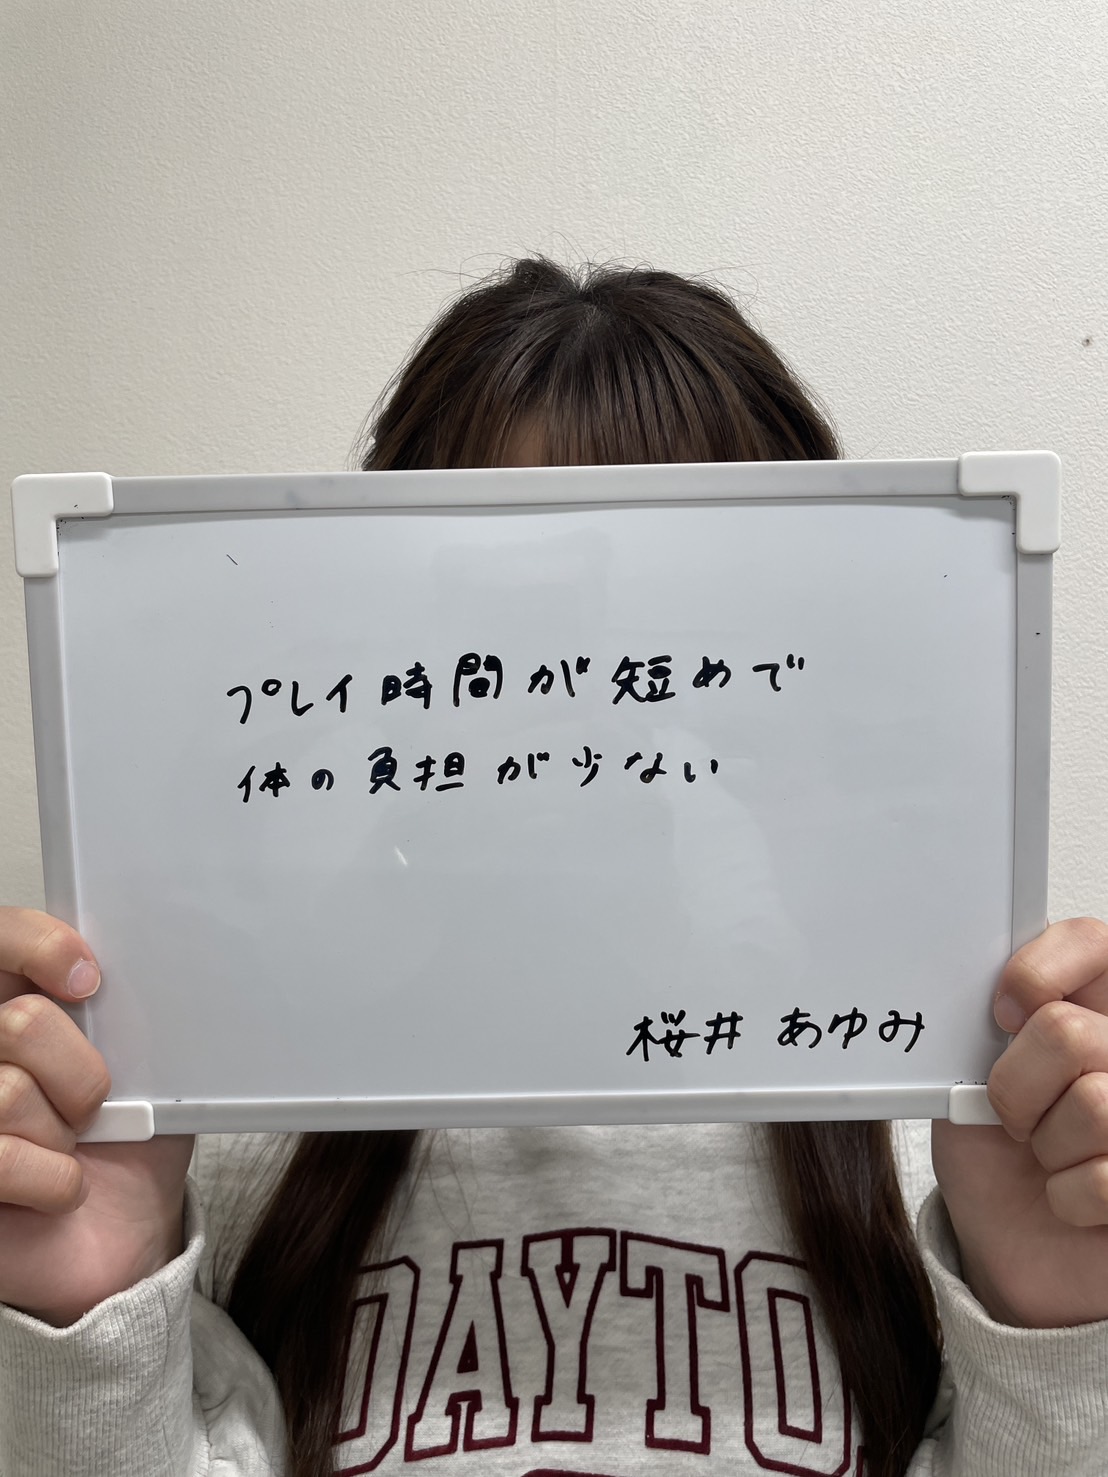 プレイ時間が短めで
体の負担が少ない
桜井 あゆみ
DAYTO